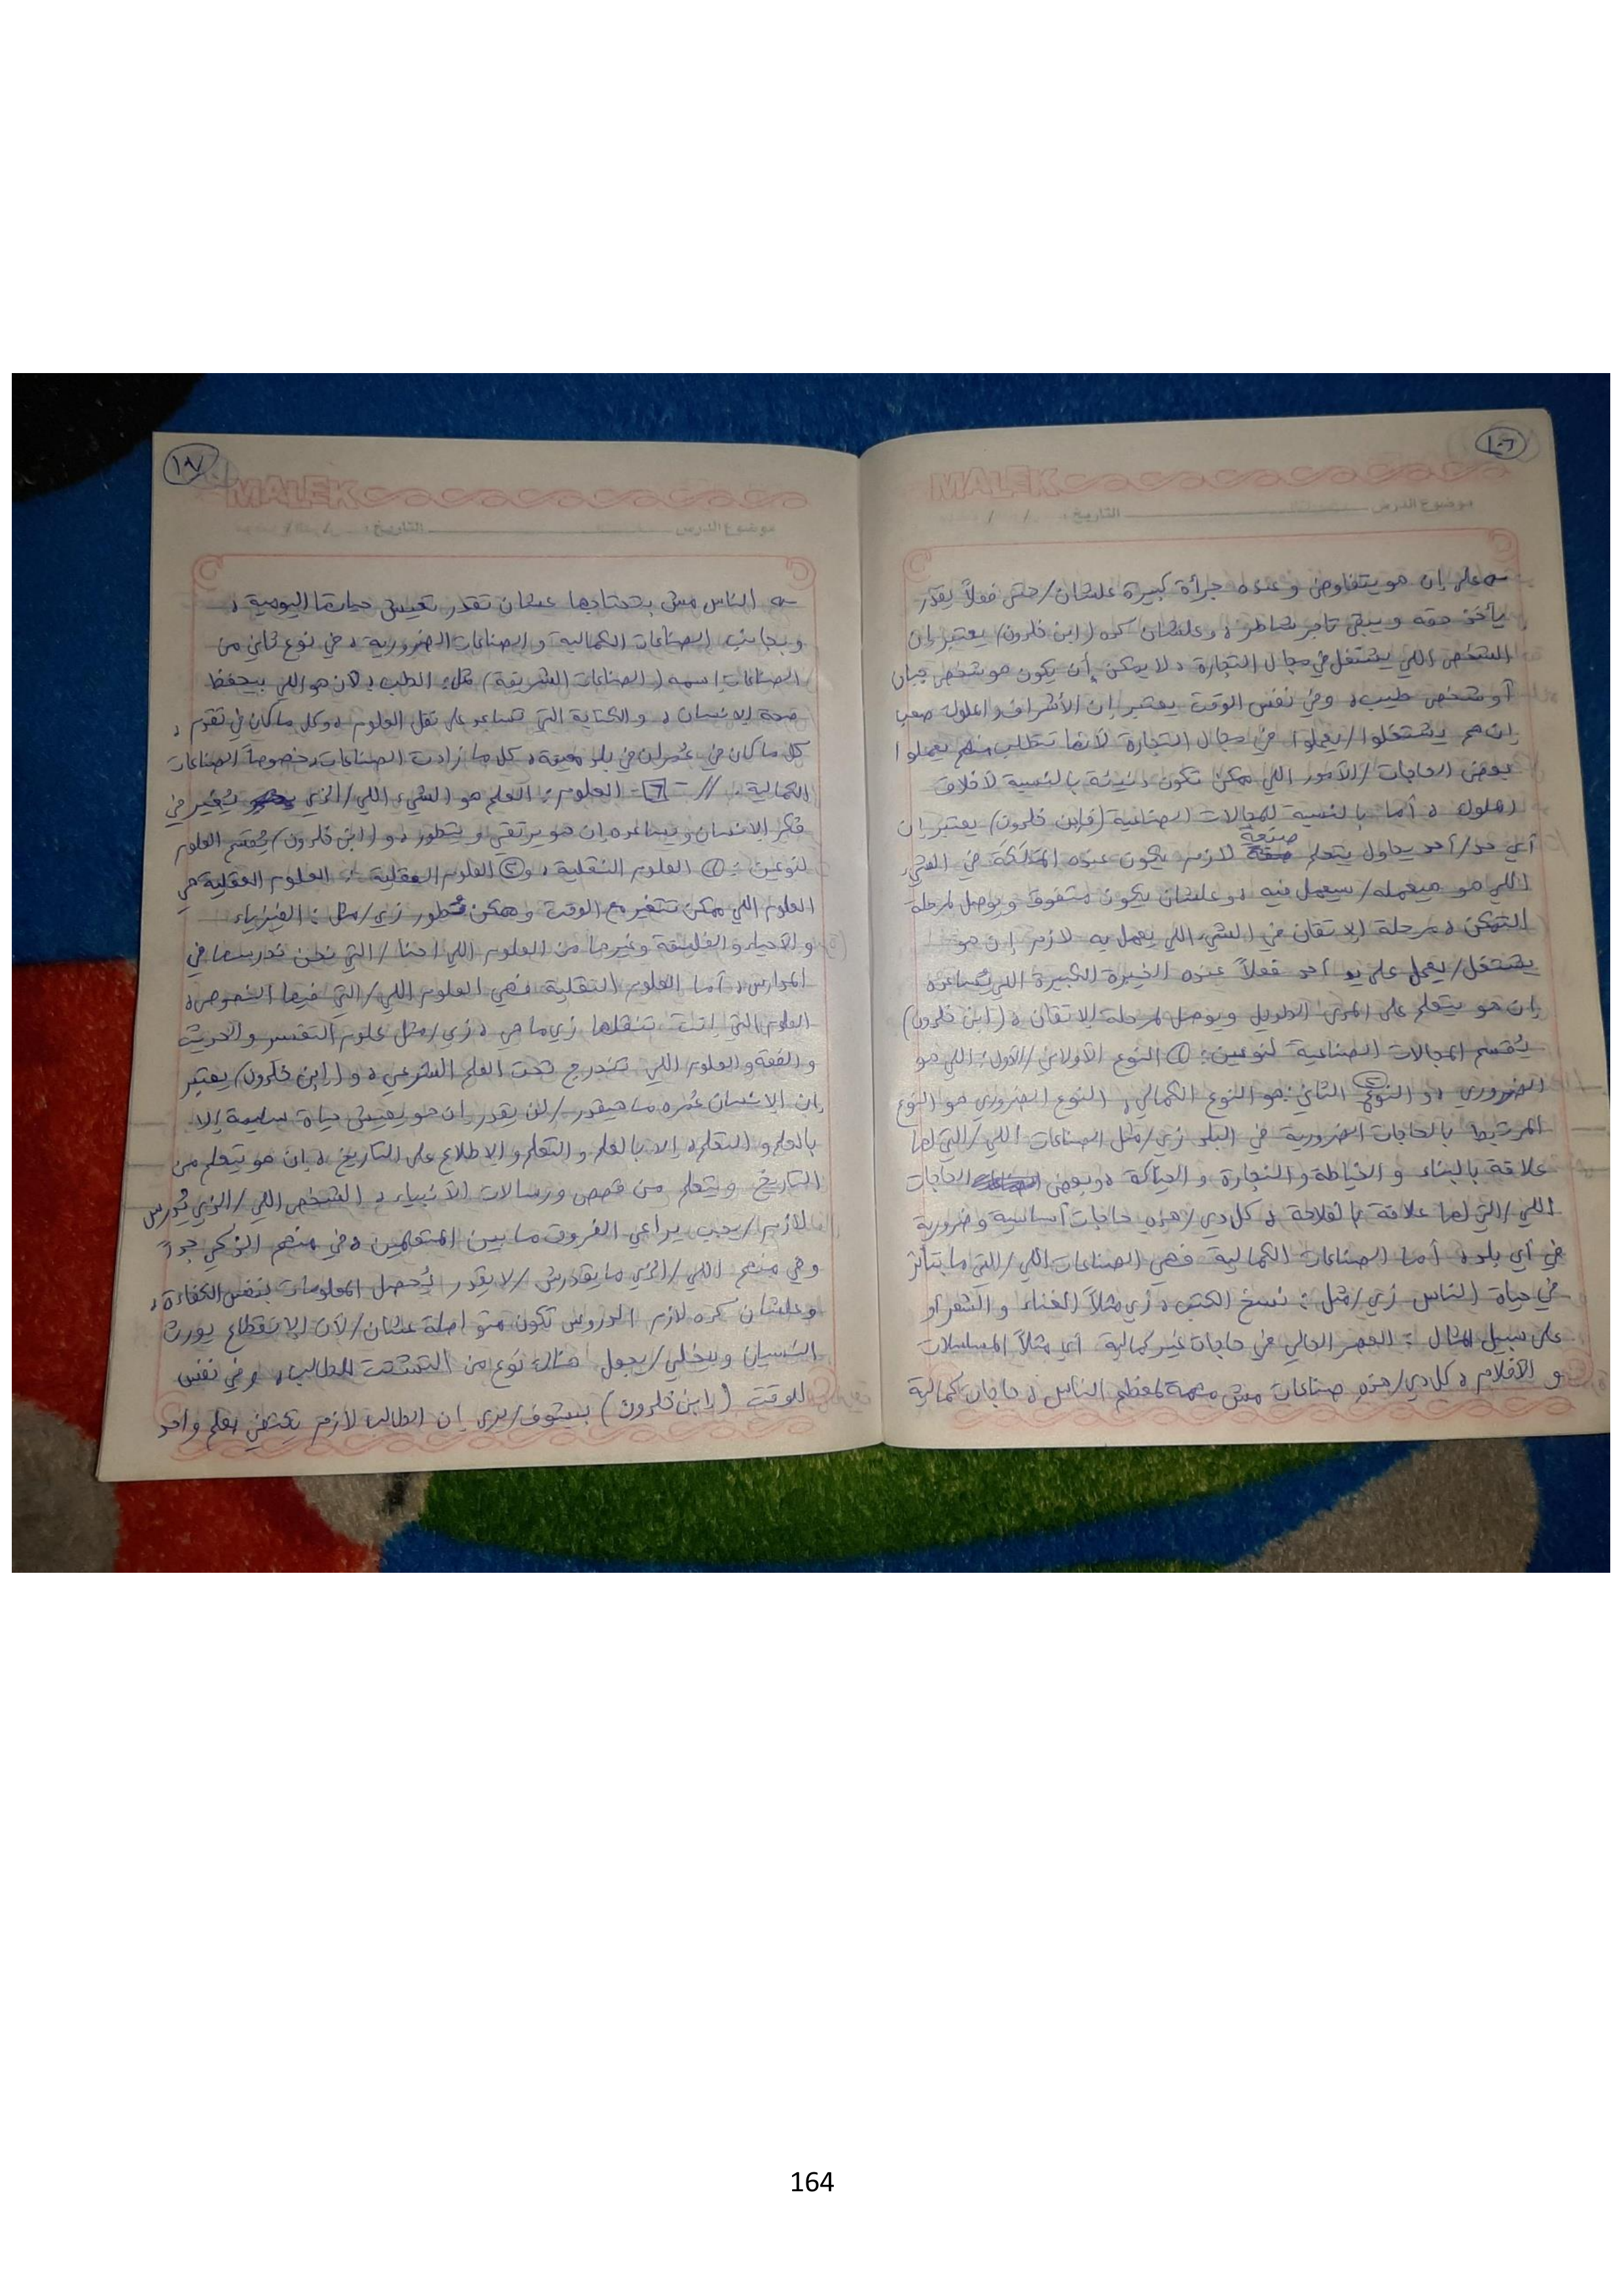 ١٠٦
MALEK
موضوع الدرس التاريخ : / /
على إن هو يتفاوض وعنده جرأة كبيرة علشان/حتى فعلاً يقدر
يأخذ حقه ويبقى تاجر شاطر، وعلشان كده (ابن خلدون) يعتبر إن
الشخص اللي يشتغل في مجال التجارة، لا يمكن أن يكون هو شخص جبان
أو شخص طيب، وفي نفس الوقت يعتبر إن الأشراف والملوك صعب
إن هم يشتغلوا/يعملوا في مجال التجارة لأنها تتطلب منهم يعملوا
بعض الحاجات/الأمور اللي ممكن تكون دنيئة بالنسبة لأخلاق
الملوك، أما بالنسبة للمجالات الصناعية (فابن خلدون) يعتبر إن
أي حد/أحد يحاول يتعلم صنعة لازم يكون عنده المَلَكَة في الشيء
اللي هو هيعمله/سيعمل فيه، وعلشان يكون متفوق ويوصل لمرحلة
التمكن، مرحلة الإتقان في الشيء اللي يعمل به لازم إن هو
يشتغل/يعمل على يد أحد فعلاً عنده الخبرة الكبيرة اللي تُساعده
إن هو يتعلم على المدى الطويل ويوصل لمرحلة الإتقان، (ابن خلدون)
يُقسم المجالات الصناعية لنوعين: ① النوع الأولاني/الأول: اللي هو
الضروري، و② النوع الثاني: هو النوع الكمالي، النوع الضروري هو النوع
المرتبط بالحاجات الضرورية في البلد زي/مثل الصناعات اللي/التي لها
علاقة بالبناء والخياطة والنجارة والحياكة، وبعض الحاجات
اللي/التي لها علاقة بالفلاحة، كل دي/هذه حاجات أساسية وضرورية
في أي بلد، أما الصناعات الكمالية فهي الصناعات اللي/التي ما بتأثر
في حياة الناس زي/مثل: نسخ الكتب، زي مثلاً الغناء والشعر أو
على سبيل المثال: العصر الحالي في حاجات غير كمالية أي مثلاً المسلسلات
والأفلام، كل دي/هذه صناعات مش مهمة لمعظم الناس، حاجات كمالية
١٠٧
MALEK
موضوع الدرس التاريخ : / /
الناس مش بتحتاجها عشان تقدر تعيش حياتها اليومية،
وبجانب الصناعات الكمالية والصناعات الضرورية، في نوع ثاني من
الصناعات إسمه (الصناعات الشريفة) مثل: الطب، لأن هو اللي بيحفظ
صحة الإنسان، والكتابة التي تساعد على نقل العلوم، وكل ما كان في تقدم،
كل ما كان في عُمران في بلد معينة، كل ما زادت الصناعات، خصوصاً الصناعات
الكمالية. // - ٦ - العلوم: العلم هو الشيء اللي/الذي يُغير في
فكر الإنسان ويساعده إن هو يرتقي ويتطور، و(ابن خلدون) يُقسم العلوم
لنوعين: ① العلوم النقلية، و② العلوم العقلية. العلوم العقلية هي
العلوم اللي ممكن تتغير مع الوقت وممكن تتطور زي/مثل: الفيزياء
والأحياء والفلسفة وغيرها من العلوم اللي احنا/التي نحن ندرسها في
المدارس، أما العلوم النقلية فهي العلوم اللي/التي فيها النصوص،
العلوم التي إنت تنقلها زي ما هي، زي/مثل علوم التفسير والحديث
والفقه والعلوم اللي تندرج تحت العلم الشرعي، و(ابن خلدون) يعتبر
إن الإنسان عُمره ما هيقدر/لن يقدر إن هو يعيش حياة سليمة إلا
بالعلم والتعلم، إلا بالعلم والتعلم والإطلاع على التاريخ، إن هو يتعلم من
التاريخ ويتعلم من قصص ورسالات الأنبياء، الشخص اللي/الذي يُدرس
لازم/يجب يراعي الفروق ما بين المتعلمين، في منهم الذكي جداً
وفي منهم اللي/الذي ما يقدرش/لا يقدر يُحصل المعلومات بنفس الكفاءة،
وعلشان كده لازم الدروس تكون متواصلة عشان/لأن الإنقطاع يورث
النسيان وبيخلي/يجعل هناك نوع من التشتت للطالب، وفي نفس
الوقت (ابن خلدون) بيشوف/يرى إن الطالب لازم يكتفي بعلم واحد
164